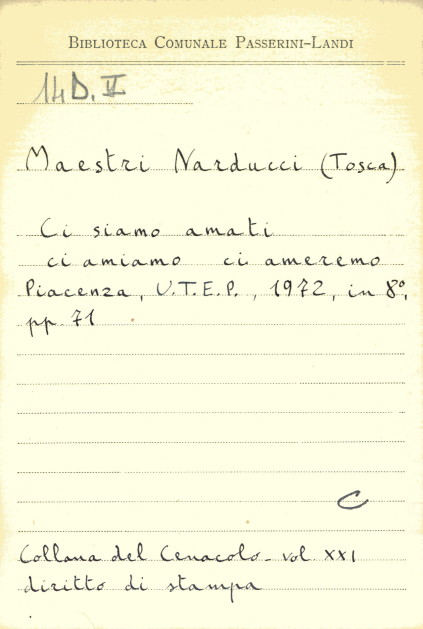 BIBLIOTECA COMUNALE PASSERINI-LANDI
14 D. V
Maestri Narducci (Tosca)
Ci siamo amati
ci amiamo ci ameremo
Piacenza, U.T.E.P., 1972, in 8°,
pp. 71
C
Collana del Cenacolo - vol. XXI
diritto di stampa